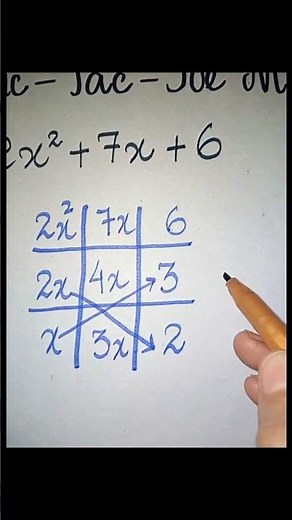 Tac-Toe
2x² + 7x + 6
2x² 7x 6
2x 4x 3
x 3x 2